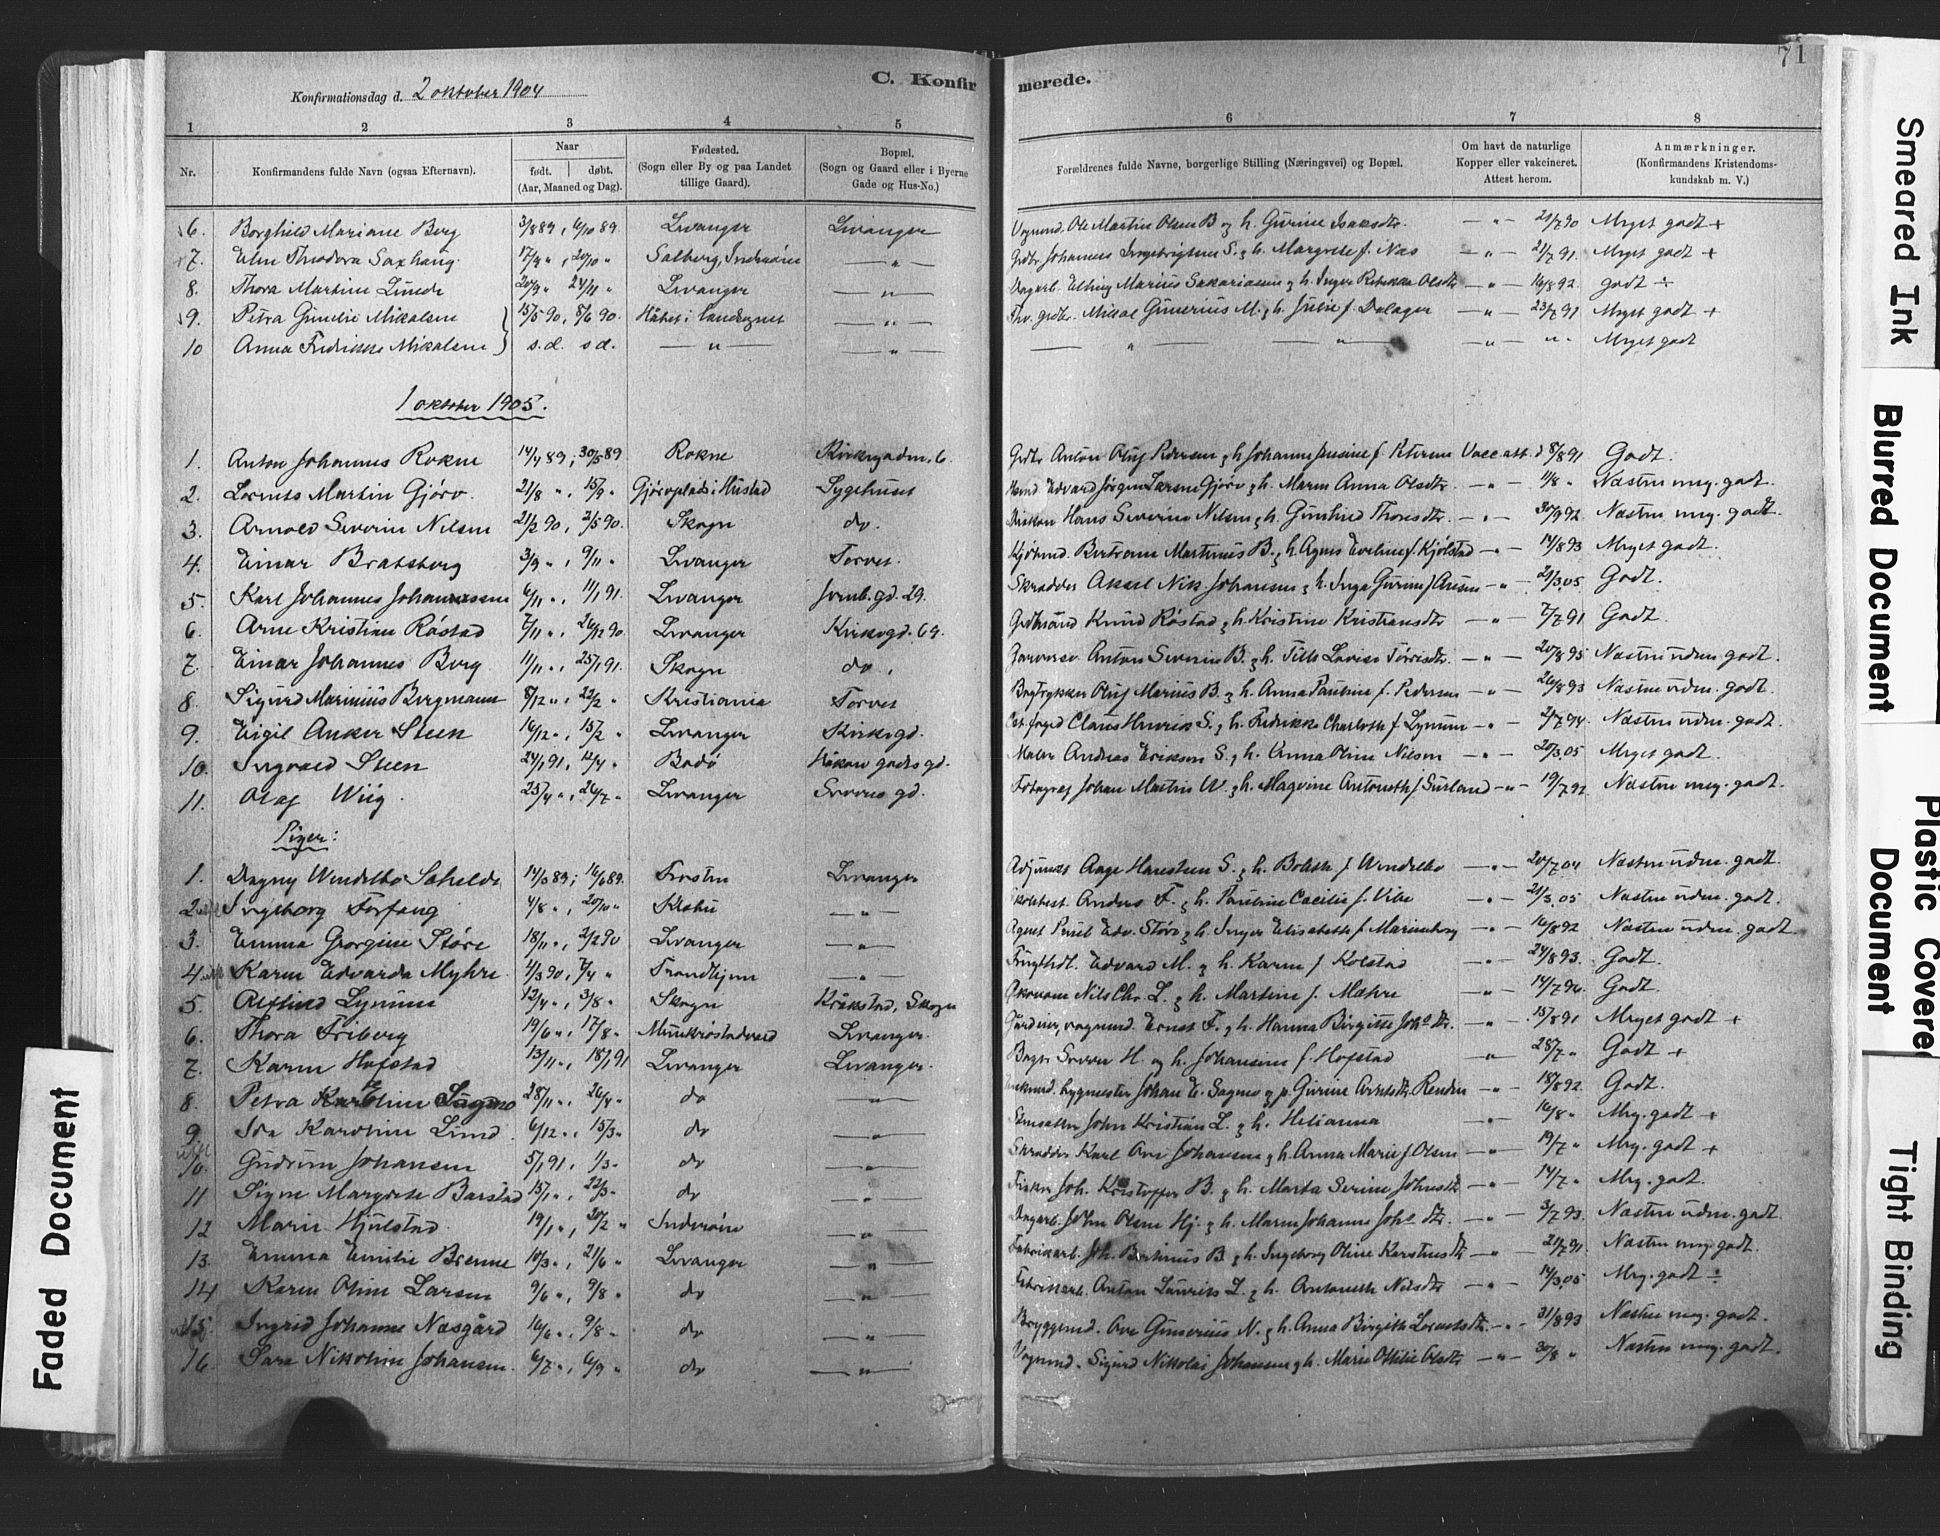 71
C. Konfirmerede.
Konfirmationsdag d. 2 oktober 1904
1 2 3 4 5 6 7 8
Nr. Konfirmandens fulde Navn (ogsaa Efternavn). Naar født. døbt. (Aar, Maaned og Dag). Fødested. (Sogn eller By og paa Landet tillige Gaard). Bopæl. (Sogn og Gaard eller i Byerne Gade og Hus-No.) Forældrenes fulde Navne, borgerlige Stilling (Næringsvei) og Bopæl. Om havt de naturlige Kopper eller vakcineret. Attest herom. Anmærkninger. (Konfirmandens Kristendomskundskab m. V.)
6. Borghild Mariane Berg 3/8 89, 6/10 89. Levanger Levanger Vognmd. Ole Martin Olsen B og h. Gurine Isaksdtr. — " — 21/7 90 Meget godt +
7. Theodora Saxhaug 17/9 ", 20/10 " Salberg, Inderøen — " — Johannes Ingebrigtsen S. & h. Margrete f. Næs — " — 21/7 91. Meget godt +
8. Thora Martine Lunde 20/9 " 24/11 " Levanger — " — Dagarb. Elling Marius Sakariassen & h. Inger Rebekka Olsdtr — " — 16/8 92. godt ÷
9. Petra Gunelie Mikalsen 15/5 90, 8/6 90. i landsognet — " — Mikal Gunerius M. & h. Julie f. Dalager — " — 23/7 91 Meget godt +
10 Anna Fredrikke Mikalsen s.d. s d. — " — — " — — " — — " — — " — " " Meget godt
1 oktober 1905.
1. Anton Johannes Rokne 14/4 89, 30/5 89 Rokne Kirkegaden. 6. Anton Oluf Pedersen & h Johanne f. Petersen Vacc att. d 8/8 91 Godt.
2. Lornts Martin Gjørv. 21/8 ", 15/9 " Gjørvplads i Hustad Sygehuset Edvard Jørgen Larsen Gjørv & h. Maren Anna Olsdtr. — " — 11/8 " Næsten meg. godt.
3. Arnold Severin Nilsen 21/2 90, 2/5 90. Skogn do. Hans Severin Nilsen & h. Gunhild Thoresdtr. — " — 30/9 92. Næsten meg. godt.
4. Einar Bratsberg 3/9 ", 9/11 " Levanger Torvet. Kjøbmd. Bertram Martinus B. & h. Agnes Eveline f. Kjølstad — " — 14/8 93 Meget godt.
5. Karl Johannes Johannessen 6/11 ", 11/1 91. Levanger Jernb.gd. 29. Skrædder Aksel Nik. Johansen & h. Inga Gurine f Arnsen — " — 21/3 05 Godt.
6. Arne Kristian Røstad 7/11 ", 26/12 90. Levanger Kirkegd. 69. Knud Røstad & h. Kristine Kristiansdtr — " — 7/7 91 Godt.
7. Einar Johannes Berg 11/11 ", 25/1 91. Skogn do. Anton Severin B. & h. Lovise Tørrisdtr. — " — 20/8 95 Næsten udm. godt.
8. Sigurd Marinius Bergmann 8/12 ", 22/2 " Kristiania Torvet Bogtrykker Oluf Marius B. & h. Anna Pauline f. Pedersen — " — 26/8 93 Næsten udm. godt.
9. Eigil Anker Steen 16/12 ", 15/2 " Levanger Kirkegd. Claus Henrik S. & h. Fredrikke Charlotte f Lynum — " — 2/7 94. Næsten udm. godt.
10. Ingvald Steen 24/1 91, 12/4 " Bodø Håkon godes gd. Maler Andreas Erikson S. & h. Anna Oline Nilsen — " — 20/3 05 Meget godt.
11. Olaf Wiig. 25/4 ", 26/7 " Levanger Sverres gd. Fotograf Johan Martin W. & h. Magvine Antonette f Surland — " — 19/7 92 Næsten meg. godt.
Piger:
1. Dagny Wendelbo Schelde 14/3 89; 16/6 89. Frosten Levanger Adjunkt Aage Harestuen S. & h. Bolette f Wendelbo — " — 20/7 04 Næsten udm. godt.
2 Ingeborg Forfang 4/8 ", 20/10 " Klæbu — " — Anders F. & h. Pauline Cæcilie f. Vibe — " — 21/3 05 Næsten udm. godt.
3. Emma Georgine Støre 18/11 ", 2/2 90 Levanger — " — Agent Paul Edv. Støre & h. Inger Elisabeth f Marienborg — " — 16/8 92 Næsten udm. godt.
4 Karen Edvarda Myhre 11/3 90, 7/4 " Trondhjem — " — Edvard M. & h. Karen f Kolstad — " — 24/8 93. Godt.
5. Lynum 12/4 ", 3/8 " Skogn Kråkstad, Skogn Nils Chr. L. & h. Martine f. Mæhre — " — 14/7 96. Godt.
6. Thora Friberg 19/6 ", 17/8 " Levanger. Ernst F. & h. Hanna Birgitte Johs dtr. — " — 15/8 91 Meget godt +
7. Karen Hofstad 13/11 ", 18/1 91 Levanger Levanger. Bager Sverre H. og h. Johansine f. Hofstad " 28/7 " Godt +
8. Petra Karoline Sagmo 28/11 ", 26/4 " do — " — bygmester Johan E. Sagmo & p. Gurine Arntsdtr. Renden — " — 18/8 92. Godt.
9. Ida Karoline Lund. 6/12 ", 15/3 " do — " — John Kristian L. & h. Helianna — " — 16/8 " Meg. godt +
10. Gudrun Johansen 5/1 91, 1/3 " do — " — Skrædder Karl Ove Johansen & h. Anna Marie f Olsen — " — 19/7 " Meg. godt +
11 Signe Margrete Barstad 15/1 ", 22/3 " do — " — Fisker Joh. Kristoffer B. & h. Marta Serine Johnsdtr — " — 14/7 " Meg. godt.
12 Marie Hjulstad. 19/1 ", 20/2 " Inderøen — " — Dagarb. John Olsen Hj. & h. Maren Johanna Johs dtr. — " — 3/7 93. Næsten udm. godt
13. Emma Emilie Brenne 10/3 ", 21/6 " Levanger — " — Fabrikarb. Joh. Bertinius B & h. Ingeborg Oline Karstensdtr — " — 21/7 91. Næsten meg. godt.
14 Karen Oline Larsen 9/6 ", 9/8 " do — " — Fabrikarb. Anton Laurits L. & h. Antonette Nilsdtr — " — 14/3 05 Meg. godt ÷
15. Ingrid Johanne Næsgård 16/6 ", 9/8 " do — " — Bryggemd. Ove Gunerius N. & h. Anna Birgitte Lorntsdtr. — " — 31/8 93 Næsten meg. godt.
16 Sara Nikoline Johansen. 6/7 ", 6/9 " do — " — Vognmd. Sigurd Nikolai Johansen & h. Marie Ottilie Olsdtr — " — 30/8 " Næsten meg. godt.
Faded Document
Smeared Ink
Blurred Document
Plastic Covered Document
Tight Binding